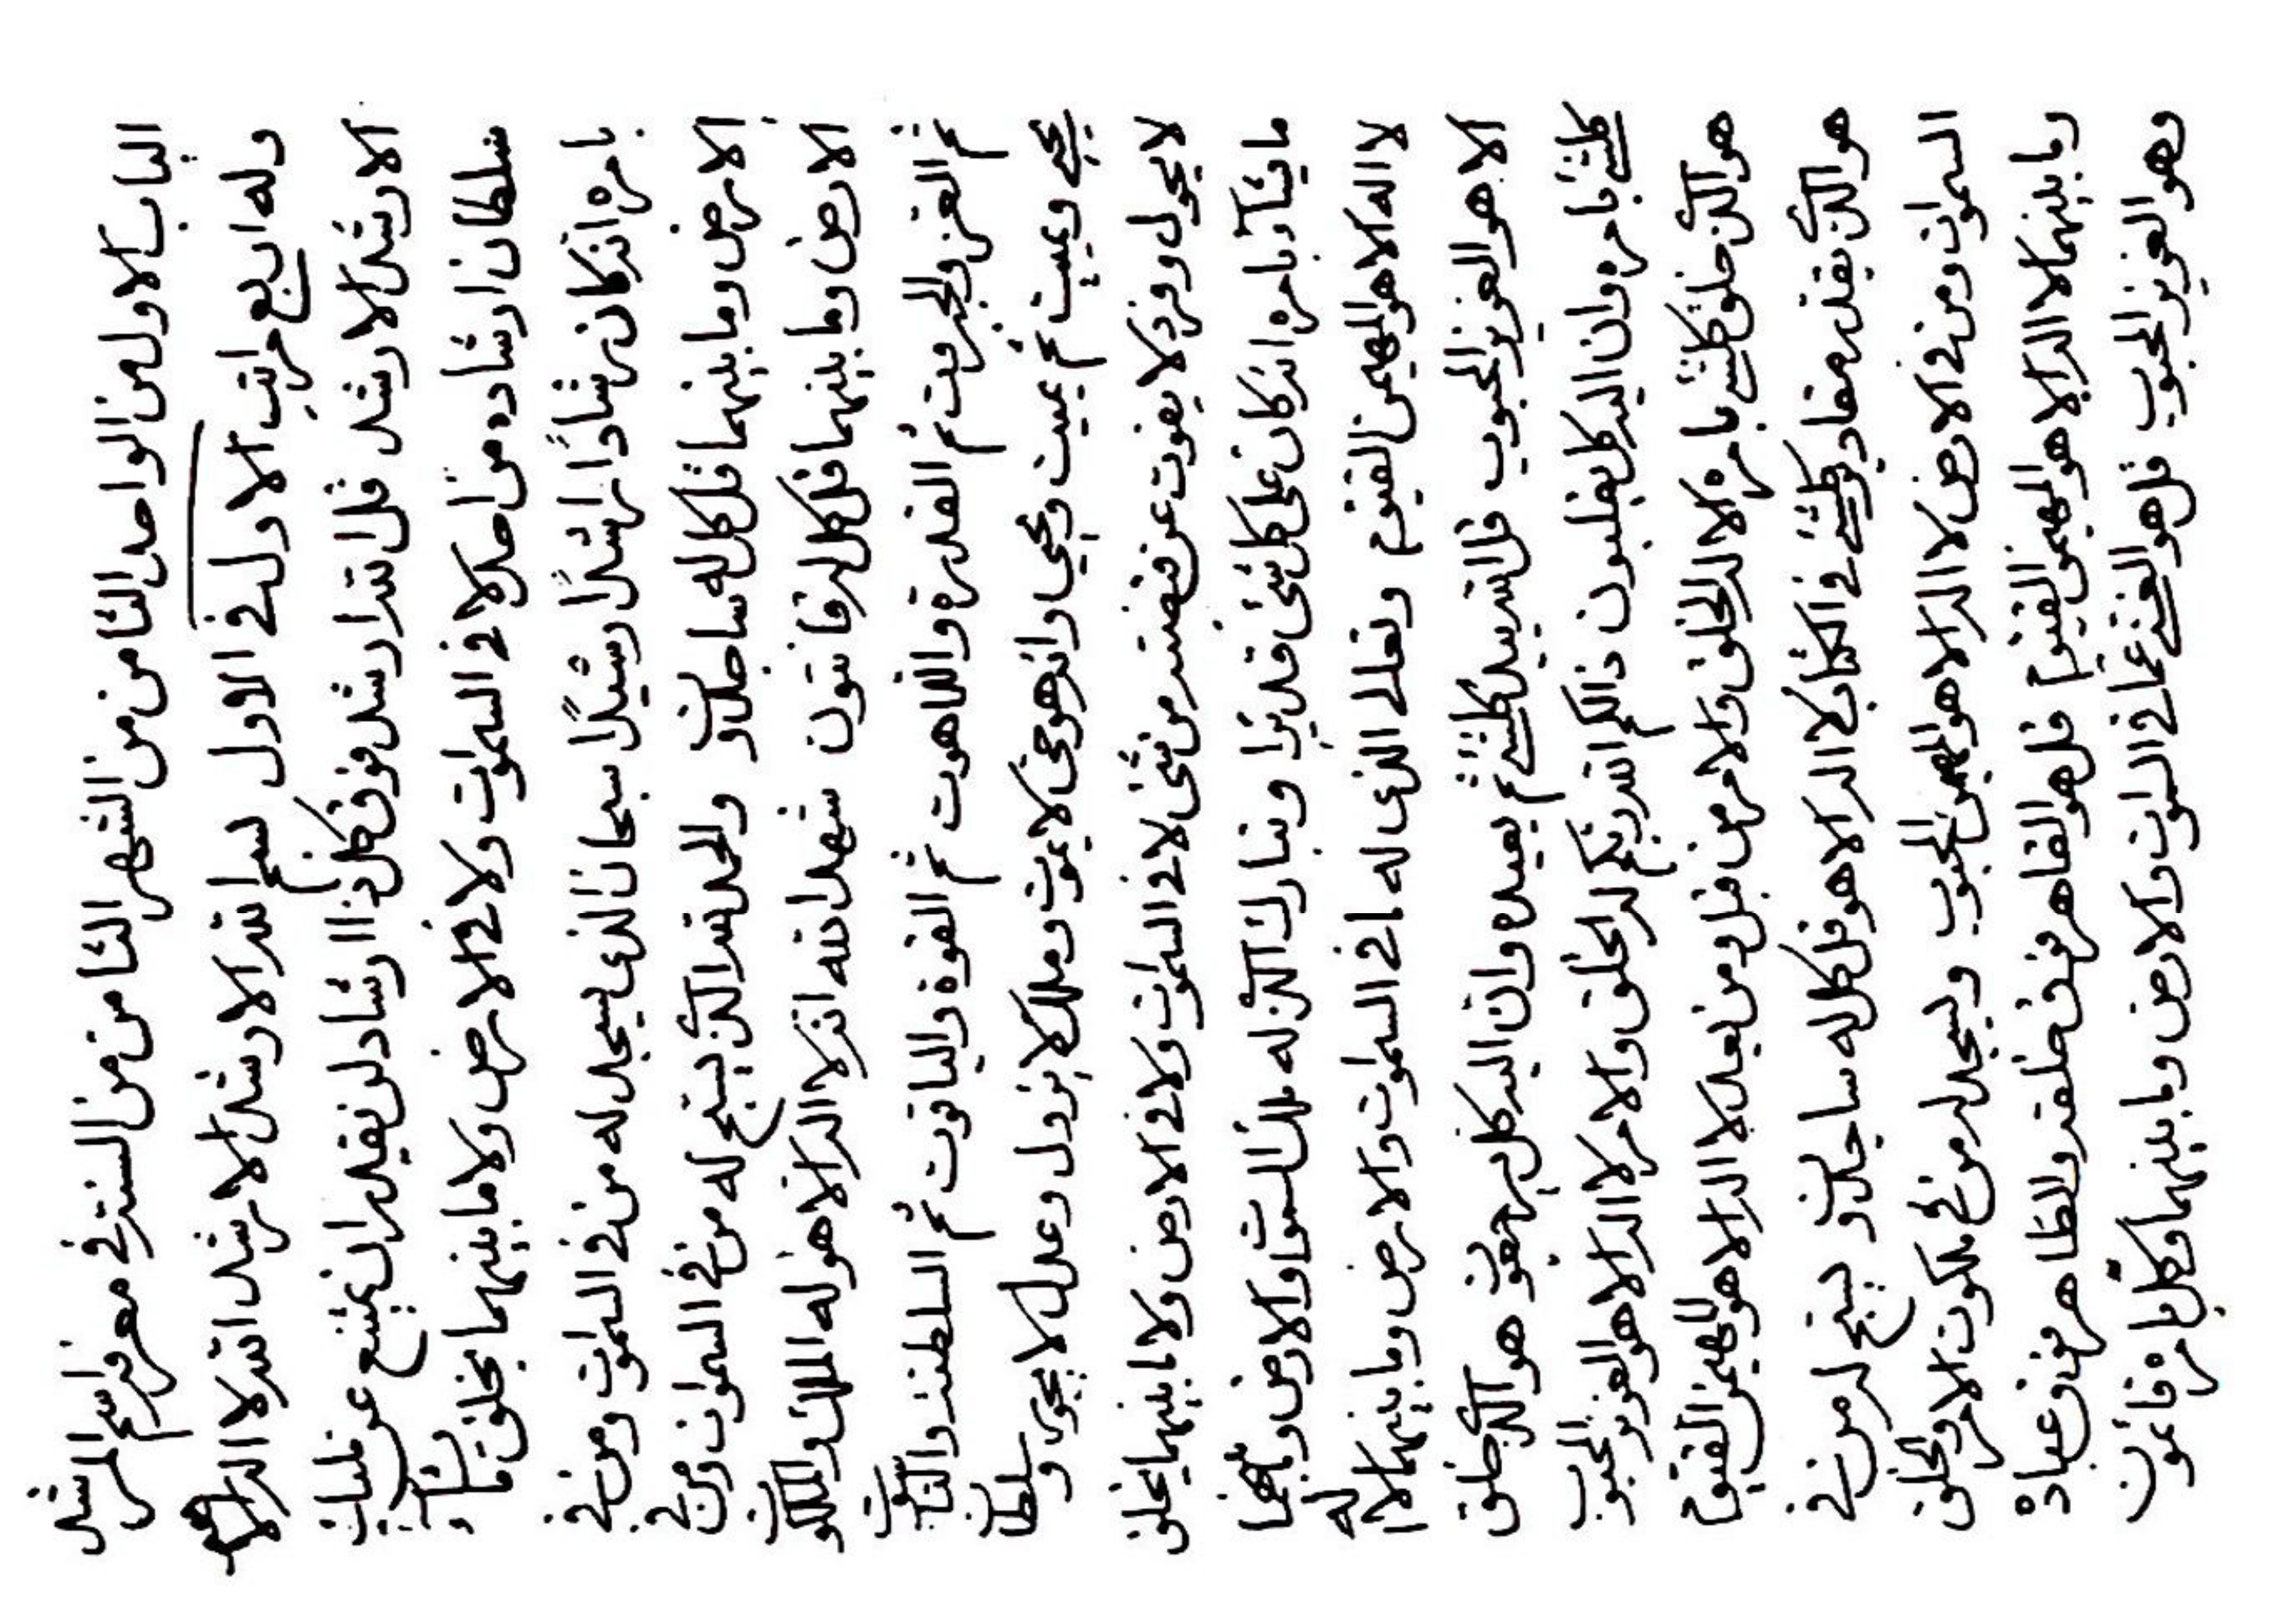 الباب الاول من الواحد الثامن من الشهر الثامن من السنة في معرفة اسم المرشد
وله اربع مراتب الاول في الاول بسم الله الارشد الارشد الله لا اله الا هو
الارشد الارشد قل الله ارشد فوق كل ذا ارشاد لن يقدر ان يمتنع عن مليك
سلطان ارشاده من احد لا في السموات ولا في الارض ولا ما بينهما يخلق ما يشاء
بامره انه كان رشادا راشدا رشيدا سبحان الذي يسجد له من في السموات ومن في
الارض وما بينهما قل كل له ساجدون والحمد لله الذي يسبح له من في السموات ومن في
الارض وما بينهما قل كل له قانتون شهد الله انه لا اله الا هو له الملك والملكوت
ثم العز والجبروت ثم القدرة واللاهوت ثم القوة والياقوت ثم السلطنة والناسوت
يحيي ويميت ثم يميت ويحيي وانه هو حي لا يموت وملك لا يزول وعدل لا يجور وسلطان
لا يحول وفرد لا يفوت عن قبضته من شئ لا في السموات ولا في الارض ولا ما بينهما يخلق
ما يشآء بامره انه كان على كل شئ قديرا وتبارك الذي له ملك السموات والارض وما بينهما
لا اله الا هو المهيمن القيوم وتعالى الذي له ما في السموات والارض وما بينهما لا اله
الا هو العزيز المحبوب قل الله يبدء كلشئ ثم يعيده وان اليه كل يرجعون هو الذي خلق
كلشئ بامره وان اليه كل يقلبون ذالكم الله ربكم له الخلق والامر لا اله الا هو العزيز المحبوب
هو الذي خلق كلشئ بامره الا له الخلق والامر من قبل ومن بعد لا اله الا هو المهيمن القيوم
هو الذي يقدر مقادير كلشئ في الكتاب لا اله الا هو قل كل له ساجدون يسبح له من في
السموات ومن في الارض لا اله الا هو المهيمن المحبوب ويسجد له من في ملكوت الامر والخلق
وما بينهما لا اله الا هو المهيمن القيوم قل هو القاهر فوق خلقه والظاهر فوق عباده
وهو العزيز المحبوب قل هو الغني عما في السموات والارض وما بينهما وكل بامره قائمون